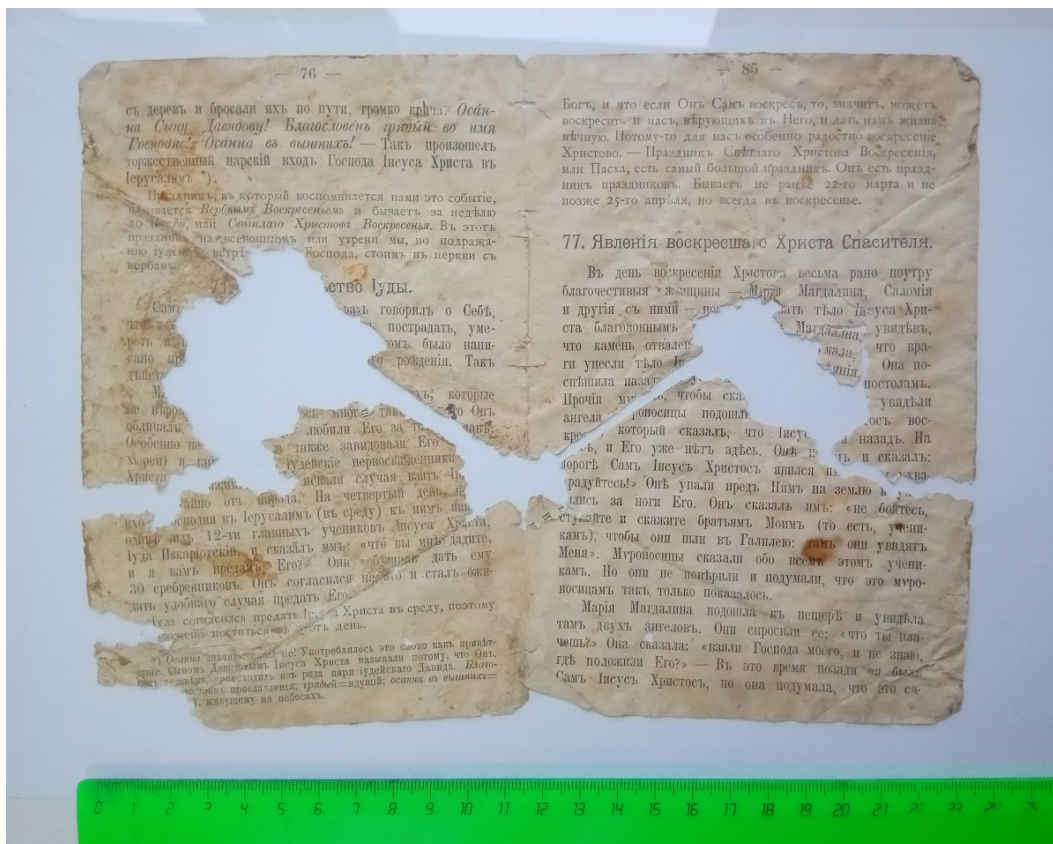 — 76 —
съ деревъ и бросали ихъ по пути, громко крича: Оса́н-
на Сыну Давидову! Благослове́нъ гряды́й во имя
Господне! Оса́нна въ вышнихъ! — Такъ произошелъ
торжественный царскій входъ Господа Іисуса Христа въ
Іерусалимъ *).
Праздникъ, въ который воспоминается нами это событіе,
называется Вербнымъ Воскресеньемъ и бываетъ за недѣлю
до Пасхи, или Свѣтлаго Христова Воскресенья. Въ этотъ
праздникъ на всенощномъ или утрени мы, по подража-
нію іудеямъ, встрѣ Господа, стоимъ въ церкви съ
вербами.
ство Іуды.
Самъ разъ говорилъ о Себѣ,
что пострадать, уме-
реть и омъ было напи-
сано рожденія. Такъ
дѣйст
хъ, которые
не вѣро Онъ
обличалъ любили Его за то
Особенно не также завидовали Его
іудейскіе первосвященники
Христа искали случая взять Іи
тайно отъ народа. На четвертый день
входа Господня въ Іерусалимъ (въ среду) къ нимъ яви
одинъ изъ 12-ти главныхъ учениковъ Іисуса Христа,
Іуда Искаріотскій, и сказалъ имъ: «что́ вы мнѣ дадите,
и я вамъ предамъ Его?» Они обѣщали дать ему
30 сребренниковъ. Онъ согласился на это и сталъ ожи-
дать удобнаго случая предать Его.
Іуда согласился предать Іисуса Христа въ среду, поэтому
положено поститься въ этотъ день.
*) Осанна значитъ: спаси же! Употреблялось это слово какъ привѣт-
ствіе. Сыномъ Давидовымъ Іисуса Христа называли потому, что Онъ,
какъ человѣкъ, происходилъ изъ рода царя іудейскаго Давида. Благо-
достоинъ прославленія; грядый=идущій; осанна въ вышнихъ=
живущему на небесахъ.
— 85 —
Богъ, и что если Онъ Самъ воскресъ, то, значитъ, можетъ
воскресить и насъ, вѣрующихъ въ Него, и дать намъ жизнь
вѣчную. Потому-то для насъ особенно радостно воскресеніе
Христово. — Праздникъ Свѣтлаго Христова Воскресенія,
или Пасха, есть самый большой праздникъ. Онъ есть празд-
никъ праздниковъ. Бываетъ не ранѣе 22-го марта и не
позже 25-го апрѣля, но всегда въ воскресенье.
77. Явленія воскресшаго Христа Спасителя.
Въ день воскресенія Христова весьма рано поутру
благочестивыя женщины — Марія Магдалина, Саломія
и другія съ ними — по зать тѣло Іисуса Хри-
ста благовоннымъ Магдалина, увидѣвъ,
что камень отвален мала, что вра-
ги унесли тѣло Іи Она по-
спѣшила назад постоламъ.
Прочія му чтобы сказ увидѣли
ангела роносицы подошли ось вос-
который сказалъ, что Іисус назадъ. На
Его уже нѣтъ здѣсь. Онѣ ъ и сказалъ:
дорогѣ Самъ Іисусъ Христосъ явился
радуйтесь!» Онѣ упали предъ Нимъ на землю и ух
лись за ноги Его. Онъ сказалъ имъ: «не бойтесь,
ступайте и скажите братьямъ Моимъ (то есть, учени-
камъ), чтобы они шли въ Галилею: тамъ они увидятъ
Меня». Мѵроносицы сказали обо всемъ этомъ учени-
камъ. Но они не повѣрили и подумали, что это мѵро-
носицамъ такъ только показалось.
Марія Магдалина подошла къ пещерѣ и увидѣла
тамъ двухъ ангеловъ. Они спросили ее: «что ты пла-
чешь?» Она сказала: «взяли Господа моего, и не знаю,
гдѣ положили Его?» — Въ это время позади ея былъ
Самъ Іисусъ Христосъ, но она подумала, что это са-
0 1 2 3 4 5 6 7 8 9 10 11 12 13 14 15 16 17 18 19 20 21 22 23 24 25